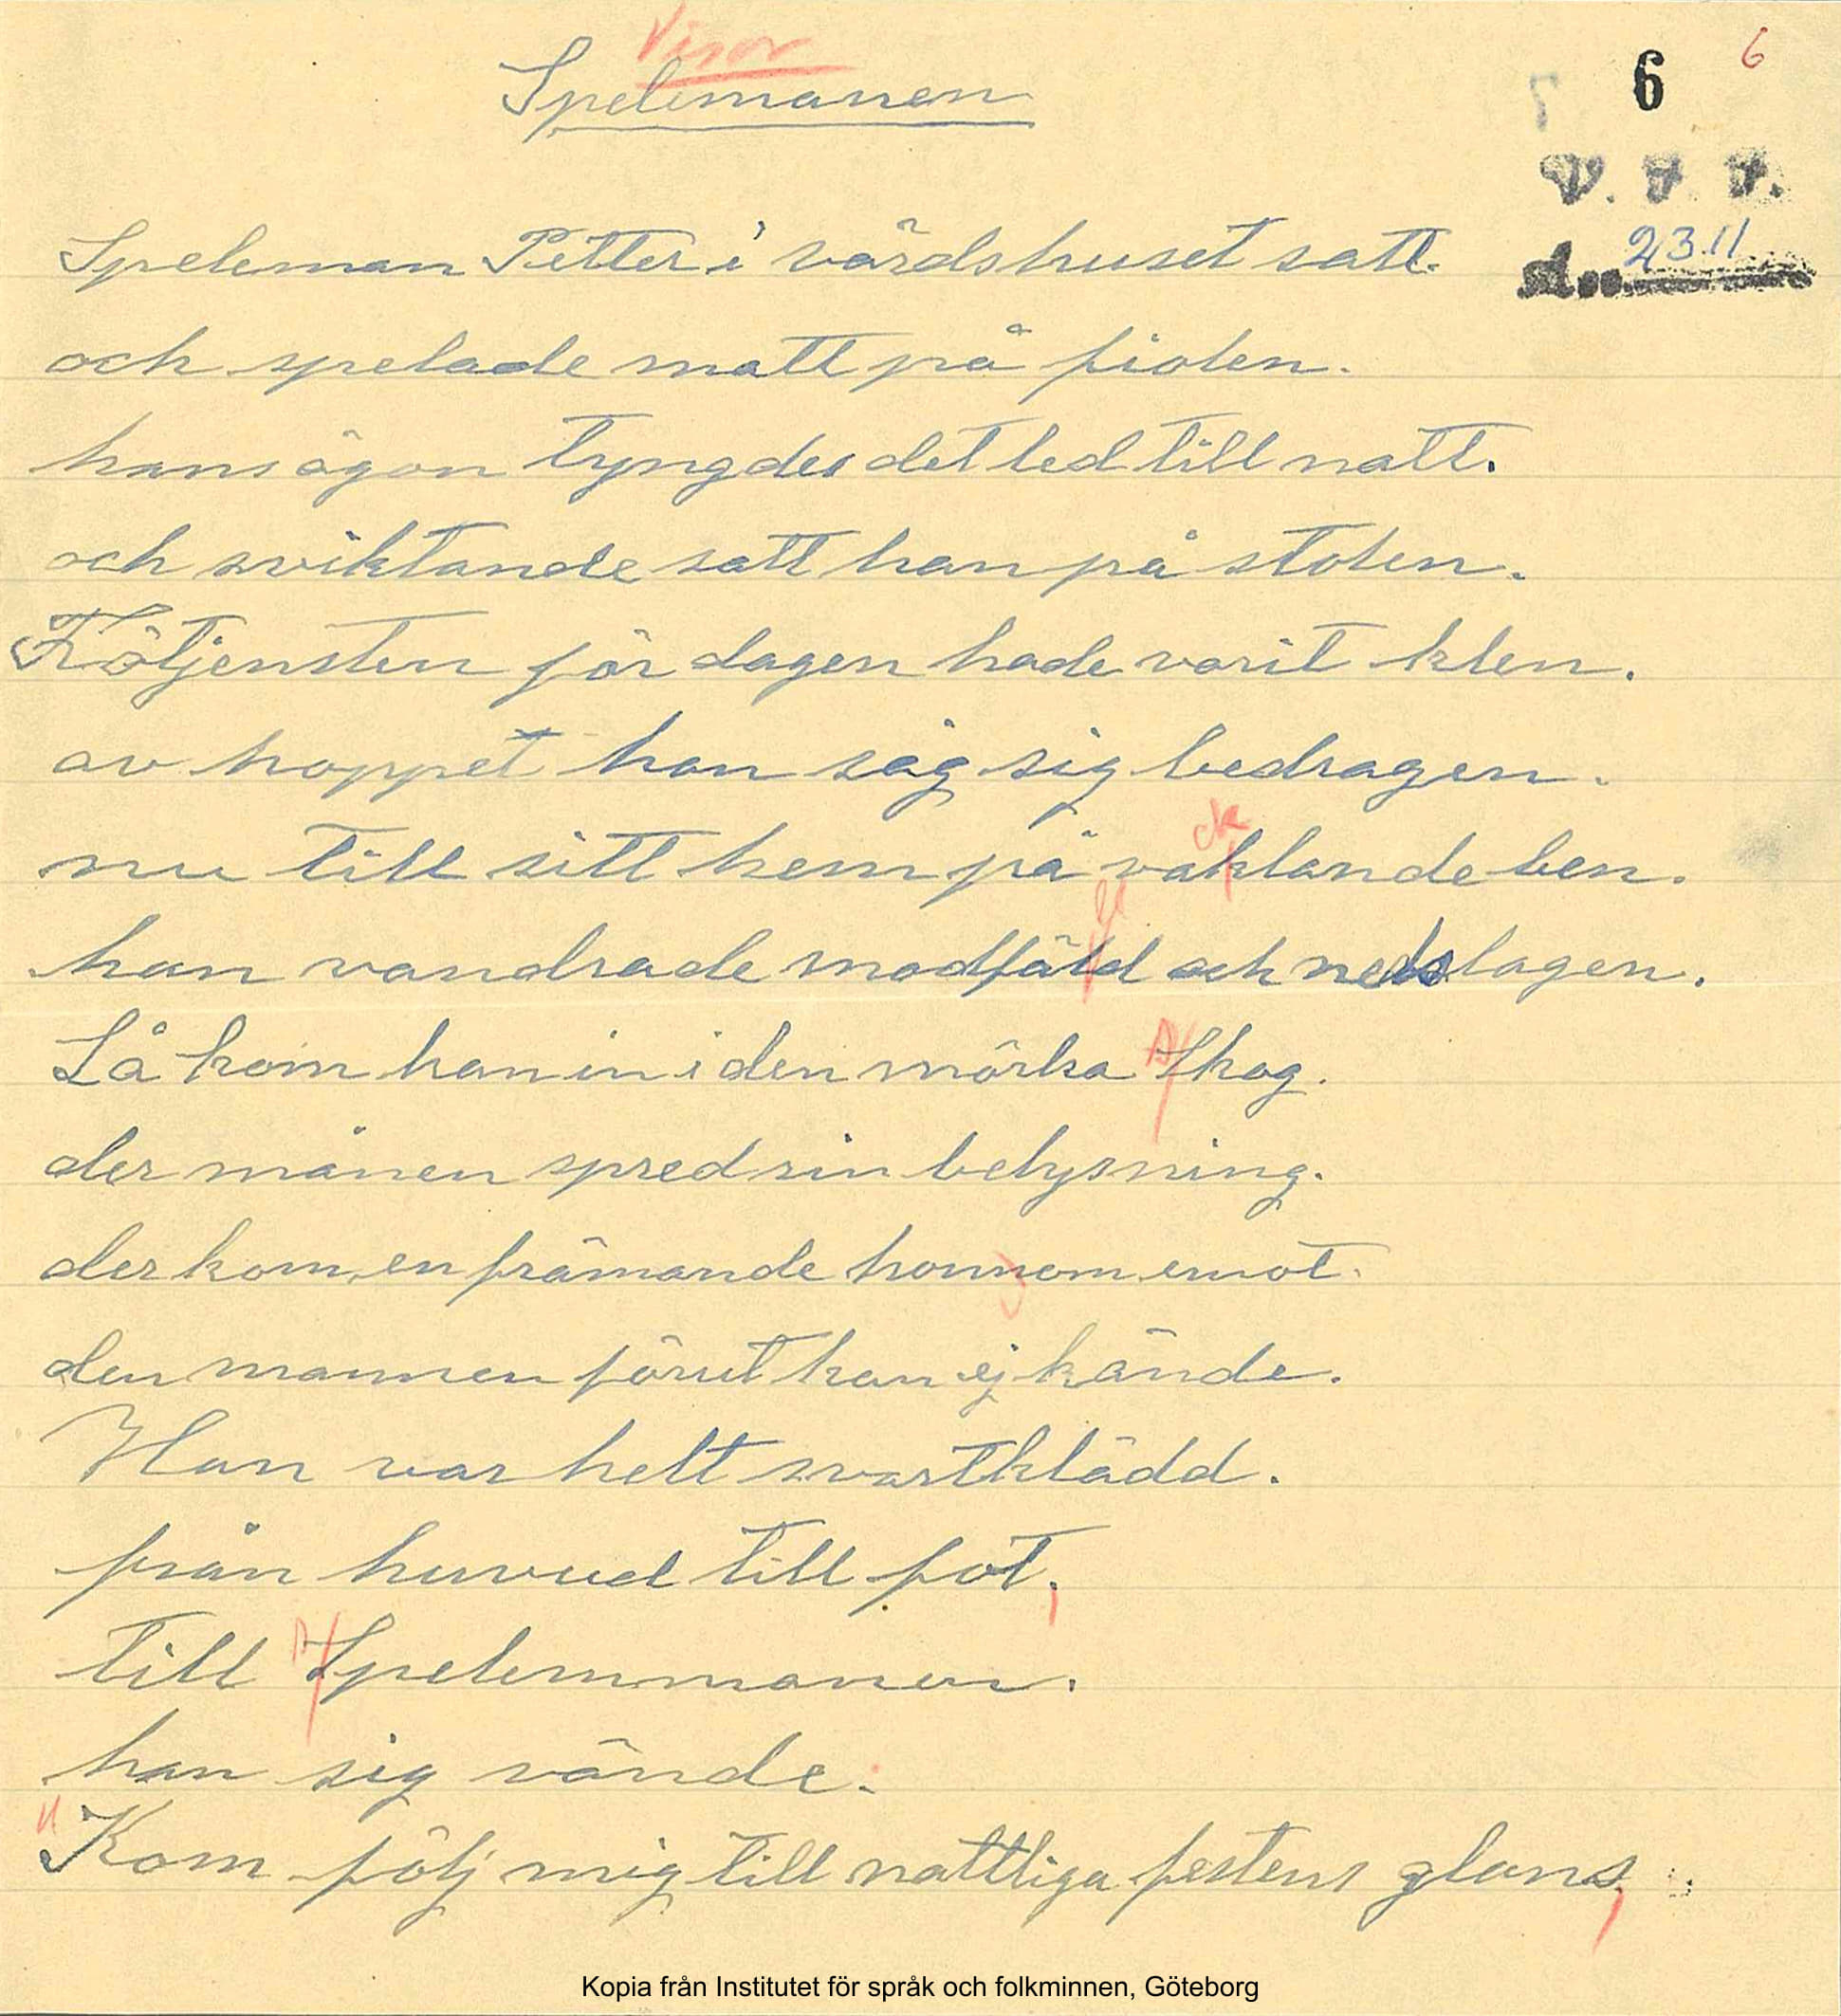 Visor
6
6
Spelemanen
V. F. F.
23.11
Speleman Petter i värdshuset satt.
och spelade matt på fiolen.
hans ögon tyngdes det led till natt.
och sviktande satt han på stolen.
Förtjensten för dagen hade varit klen.
av hoppet han såg sig bedragen.
nu till sitt hem på vaklande ben.
ck
han vandrade modfäld och nedslagen.
Så kom han in i den mörka Skog.
der månen spred sin belysning.
der kom en främande honnom emot.
den mannen förut han ej kände.
Han var helt svartklädd.
från huvud till fot.
till Spelemmanen.
han sig vände.
"Kom följ mig till nattliga festens glans,
Kopia från Institutet för språk och folkminnen, Göteborg